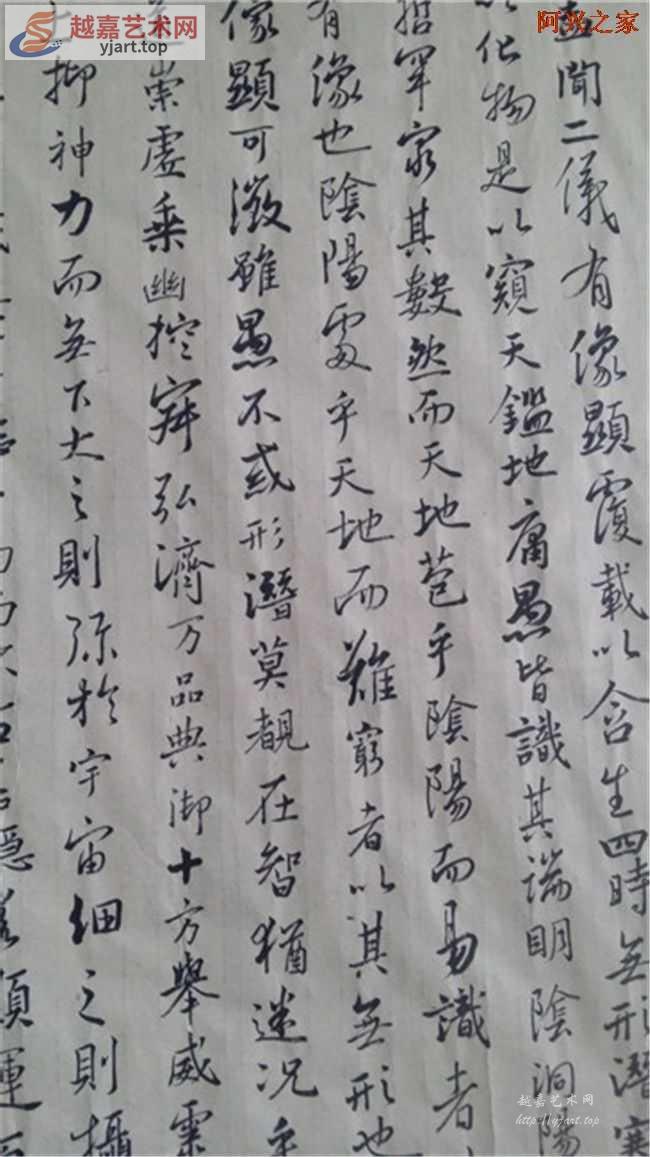 越嘉艺术网
yjart.top
阿兴之家
盖聞二儀有像顯覆載以含生四時無形潛寒
以化物是以窺天鑑地庸愚皆識其端明陰洞陽
哲罕窮其數然而天地苞乎陰陽而易識者
有像也陰陽處乎天地而難窮者以其無形也
像顯可徵雖愚不惑形潛莫覩在智猶迷况乎
崇虛乘幽控寂弘濟万品典御十方舉威靈
上抑神力而無下大之則彌於宇宙細之則攝
隱若顯運百
越嘉艺术网
http://yjart.top